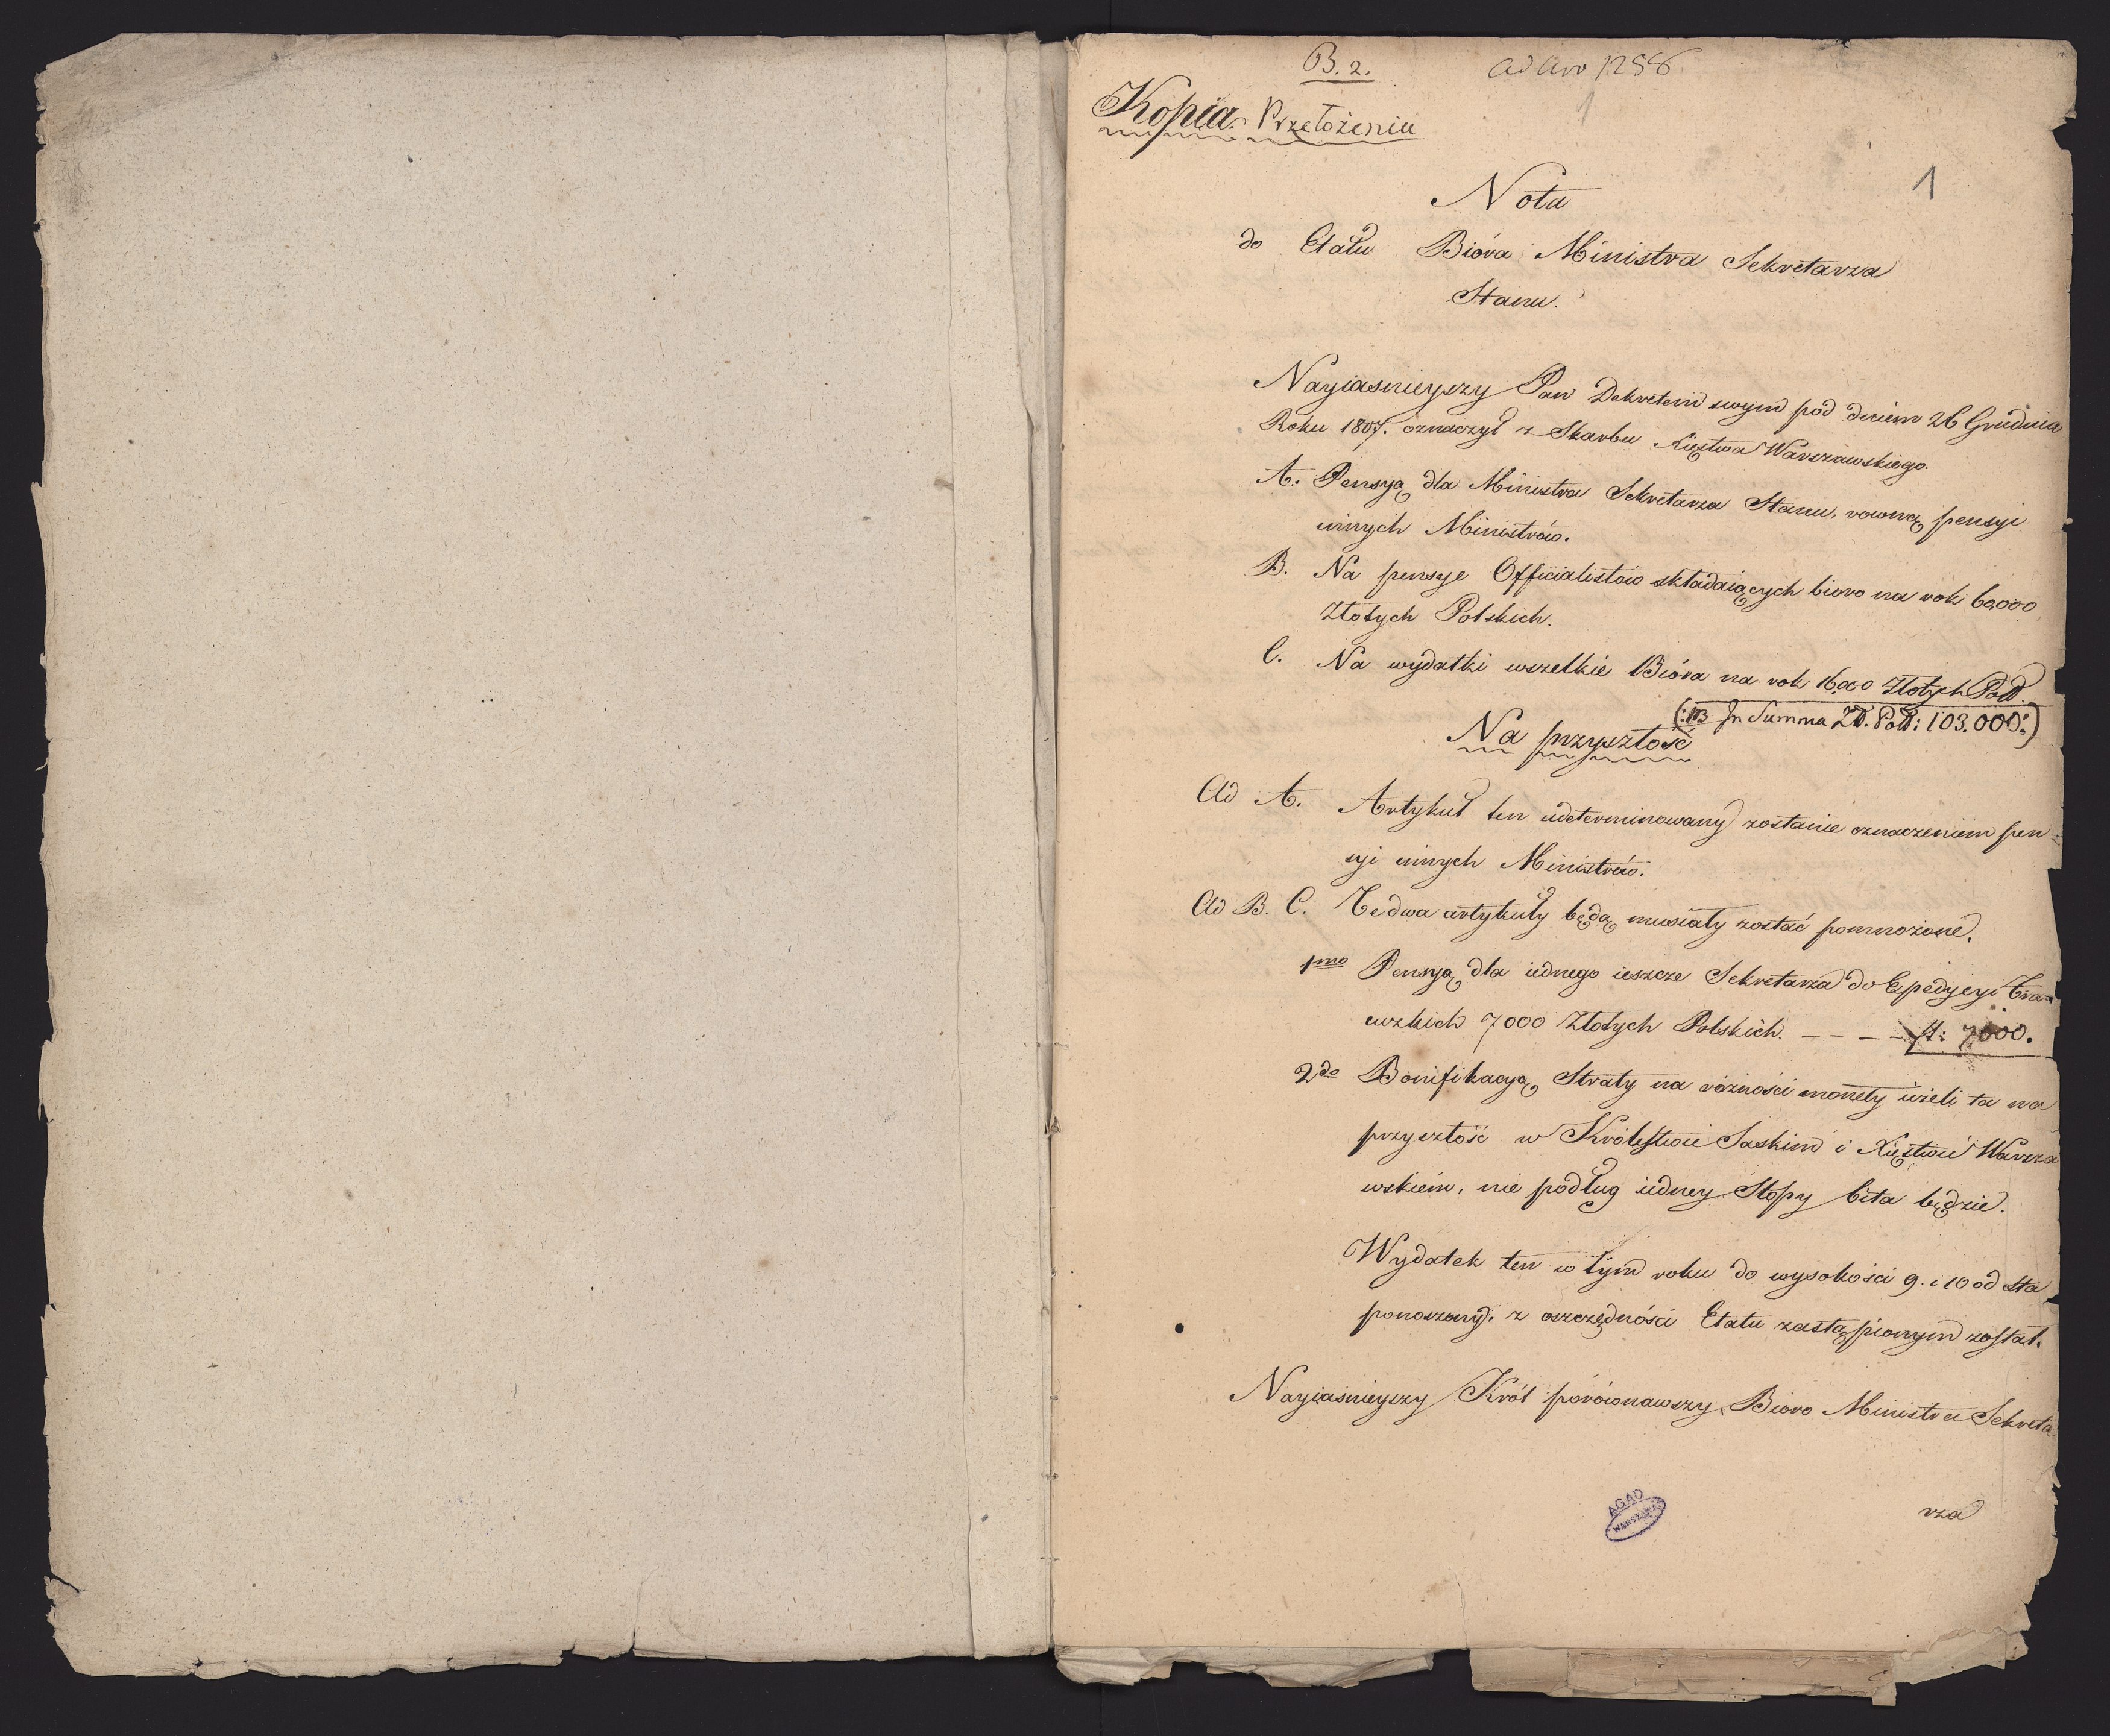 B. 2.
ad Nro 1256
1
Kopia. Przełożenia
1
Nota
do Etatu Bióra Ministra Sekretarza
Stanu.
Nayiaśnieyszy Pan Dekretem swym pod dniem 26 Grudnia
Roku 1807. oznaczył z Skarbu Xięstwa Warszawskiego.
A. Pensyą dla Ministra Sekretarza Stanu, rowną pensyi
innych Ministrów.
B. Na pensye Officialistów składaiących bioro na rok 60,000
Złotych Polskich.
C. Na wydatki wszelkie Bióra na rok 16,000 Złotych Poll.
(: NB In Summa Zł. Poll: 103.000:)
Na przyszłość
Ad A. Artykuł ten udeterminowany zostanie oznaczeniem pen-
syi innych Ministrów.
Ad B. C. Te dwa artykuły będą musiały zostać pomnożone.
1mo Pensyą dla iednego ieszcze Sekretarza do Expedycyi Fra=
cuzkich 7000 Złotych Polskich. - - - - fl: 7000.
2do Bonifikacyą Straty na różności monety ieżeli ta na
przyszłość w Królestwie Saskim i Xięstwie Warsza
wskiém, nie podług iedney Stopy bita będzie.
Wydatek ten w tym roku do wysokości 9. i 10 od sta
ponoszony, z oszczędności Etatu zastąpionym został.
Nayiaśnieyszy Król porównawszy Bioro Ministra Sekreta
rza
AGAD
WARSZAWA